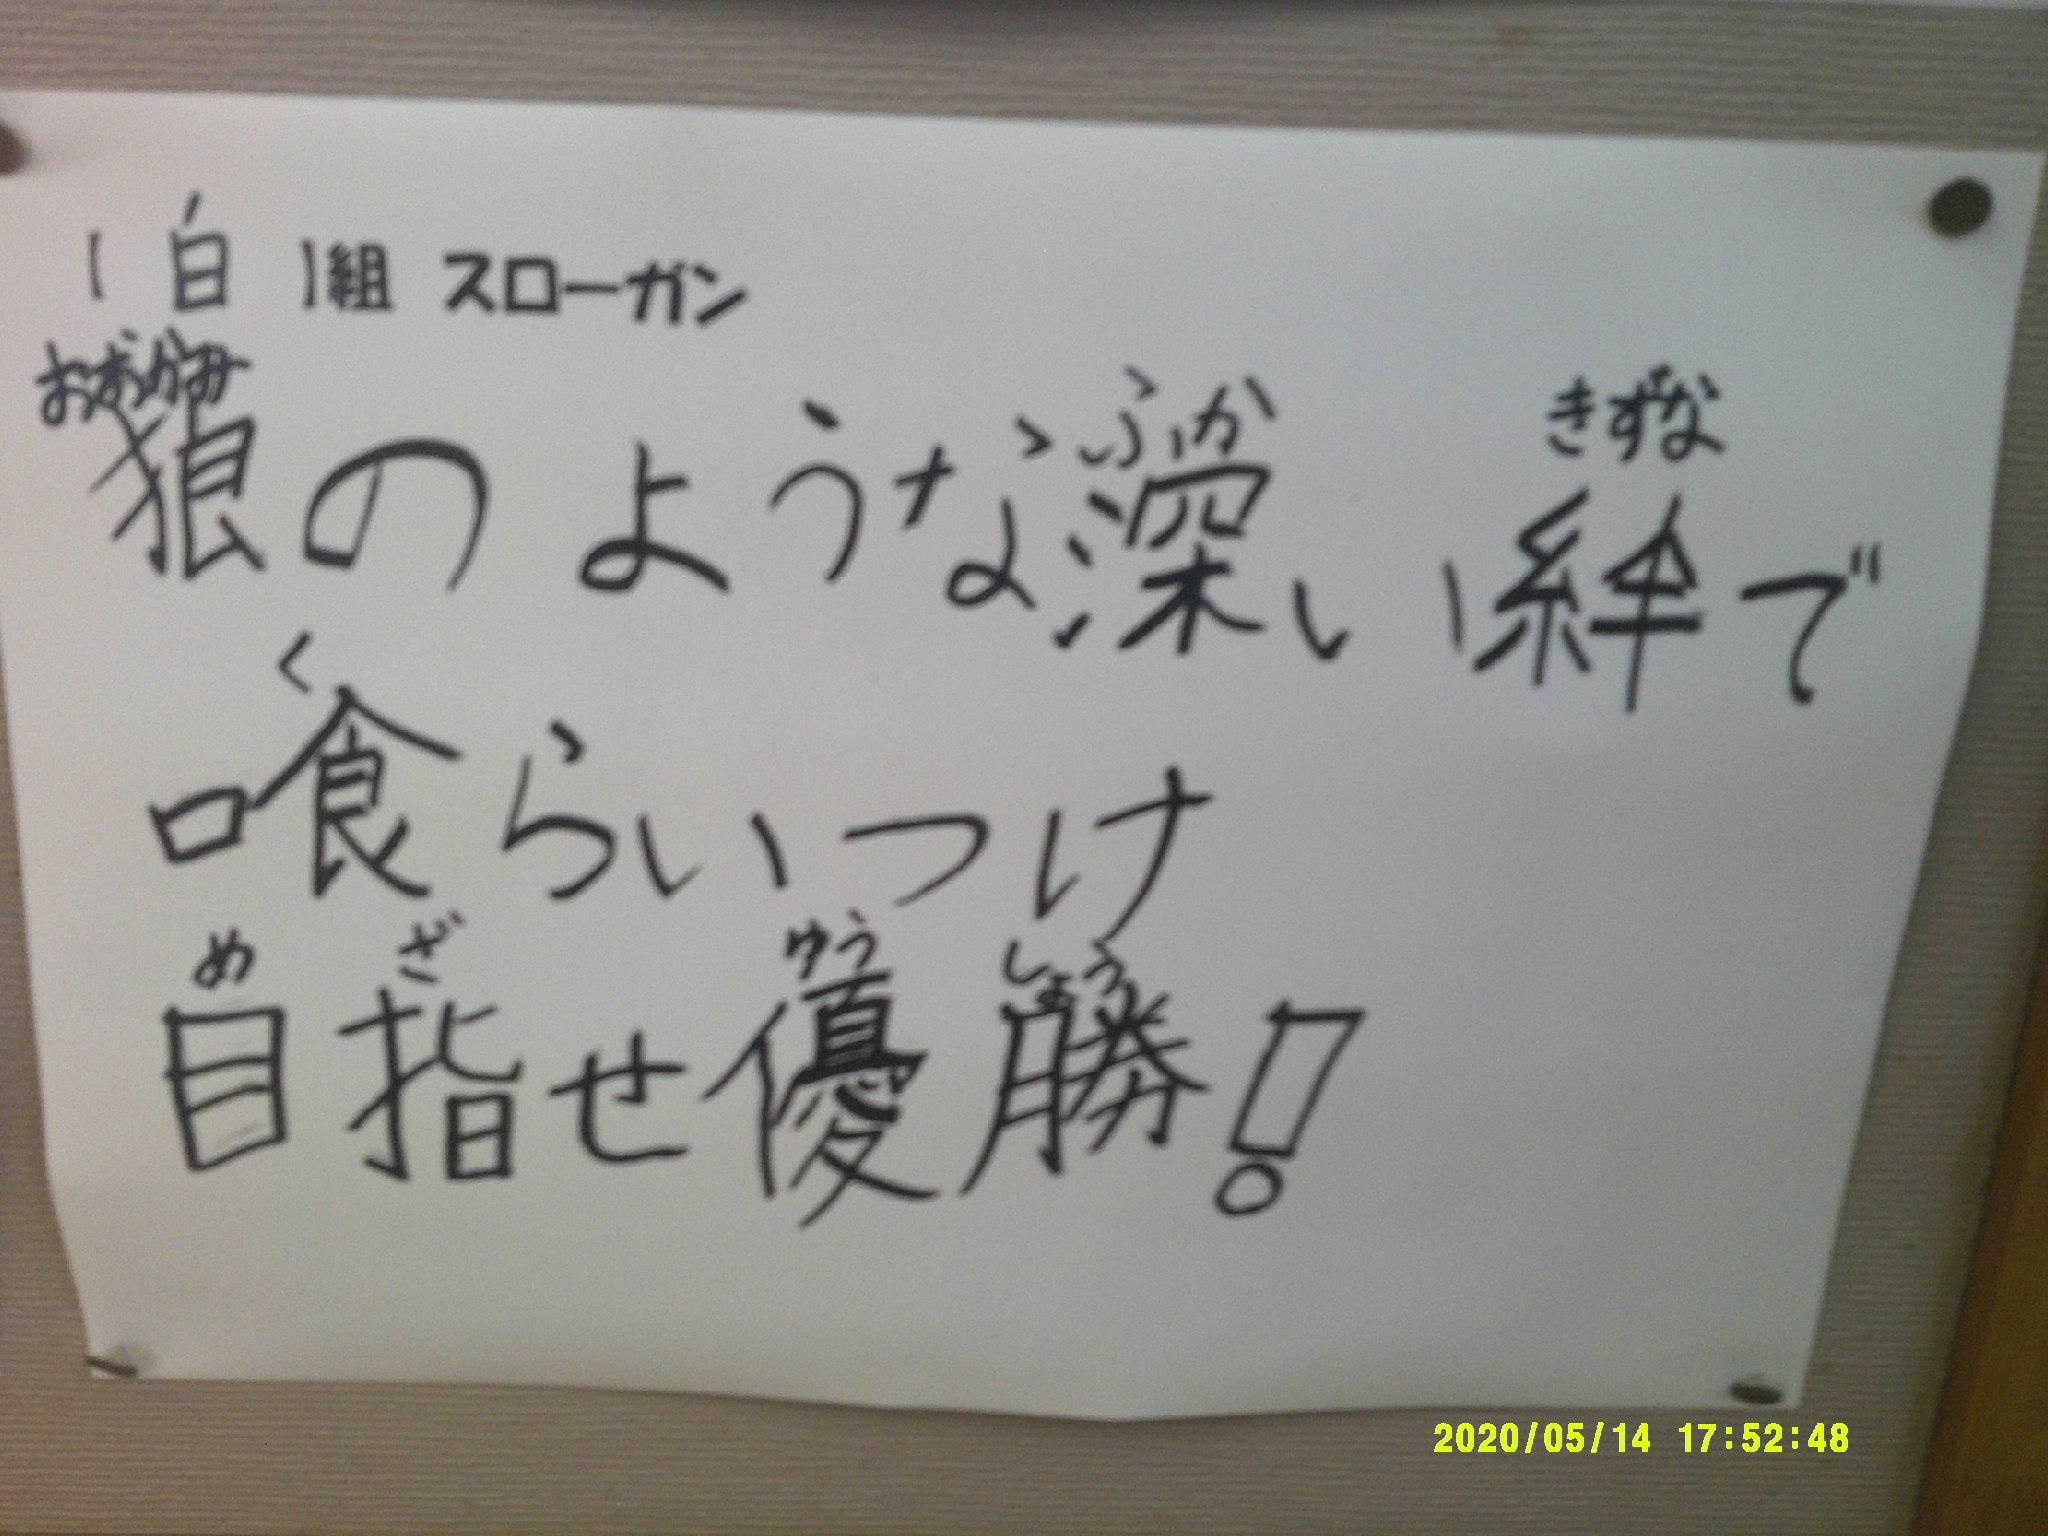 1 白 1組 スローガン
おおかみ ふか きずな
狼のような深い絆で
く
喰らいつけ
め ざ ゆう しょう
目指せ優勝!
2020/05/14 17:52:48